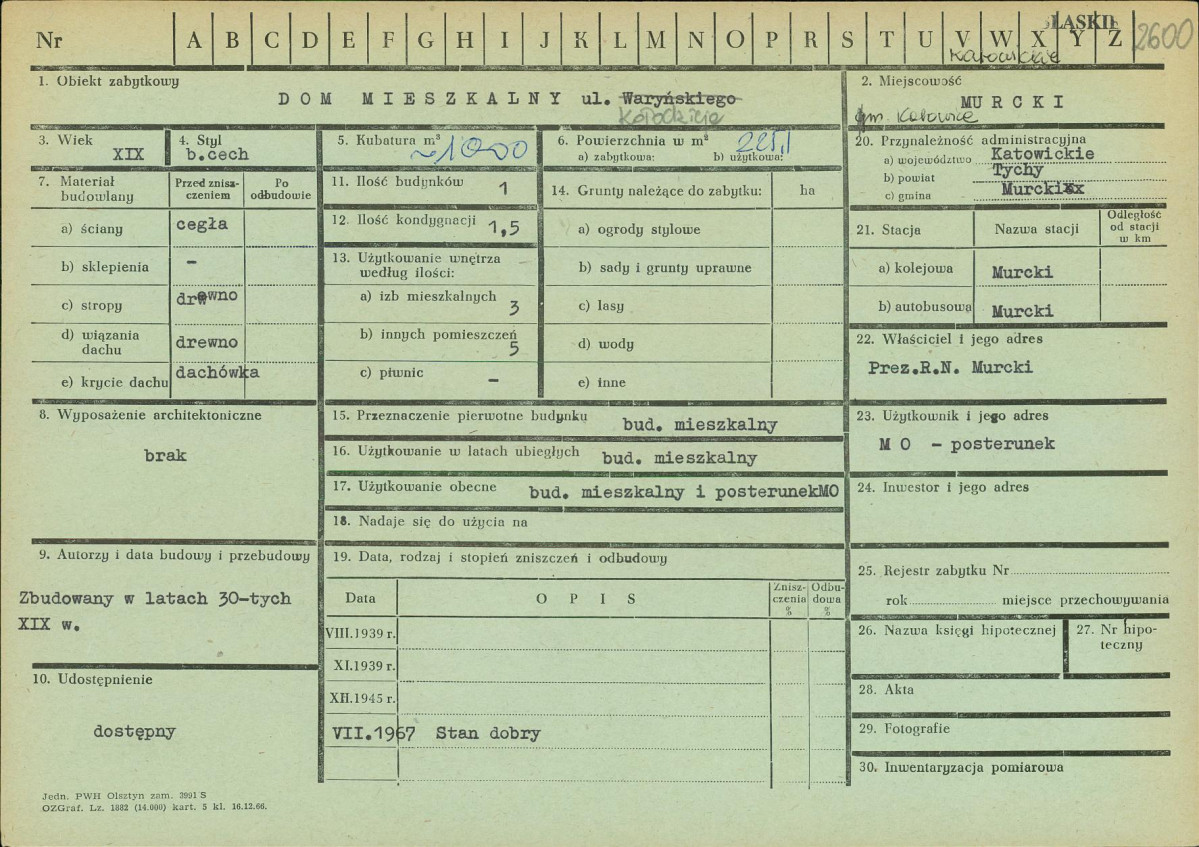 Nr A B C D E F G H I J K L M N O P R S T U V W X Y Z 2600
ŚLĄSKIE
Katowickie
1. Obiekt zabytkowy
DOM MIESZKALNY ul. Waryńskiego
Kołodzieja
2. Miejscowość
MURCKI
gm. Katowice
3. Wiek
XIX
4. Styl
b.cech
5. Kubatura m³
~1000
6. Powierzchnia w m²
225,1
a) zabytkowa: b) użytkowa:
20. Przynależność administracyjna
a) województwo Katowickie
b) powiat Tychy
c) gmina Murcki
7. Materiał budowlany
Przed znisz-
czeniem
Po
odbudowie
a) ściany cegła
b) sklepienia –
c) stropy drewno
d) wiązania
dachu drewno
e) krycie dachu dachówka
11. Ilość budynków 1
12. Ilość kondygnacji 1,5
13. Użytkowanie wnętrza
według ilości:
a) izb mieszkalnych 3
b) innych pomieszczeń 5
c) piwnic –
14. Grunty należące do zabytku: ha
a) ogrody stylowe
b) sady i grunty uprawne
c) lasy
d) wody
e) inne
21. Stacja
Nazwa stacji
Odległość
od stacji
w km
a) kolejowa Murcki
b) autobusowa Murcki
22. Właściciel i jego adres
Prez.R.N. Murcki
8. Wyposażenie architektoniczne
brak
15. Przeznaczenie pierwotne budynku bud. mieszkalny
16. Użytkowanie w latach ubiegłych bud. mieszkalny
17. Użytkowanie obecne bud. mieszkalny i posterunekMO
18. Nadaje się do użycia na
23. Użytkownik i jego adres
M O – posterunek
24. Inwestor i jego adres
9. Autorzy i data budowy i przebudowy
Zbudowany w latach 30-tych
XIX w.
19. Data, rodzaj i stopień zniszczeń i odbudowy
Data
OPIS
Znisz-
czenia
%
Odbu-
dowa
%
VIII.1939 r.
XI.1939 r.
XII.1945 r.
VII.1967 Stan dobry
25. Rejestr zabytku Nr
rok miejsce przechowywania
26. Nazwa księgi hipotecznej
27. Nr hipo-
teczny
10. Udostępnienie
dostępny
28. Akta
29. Fotografie
30. Inwentaryzacja pomiarowa
Jedn. PWH Olsztyn zam. 3991 S
OZGraf. Lz. 1882 (14.000) kart. 5 kl. 16.12.66.